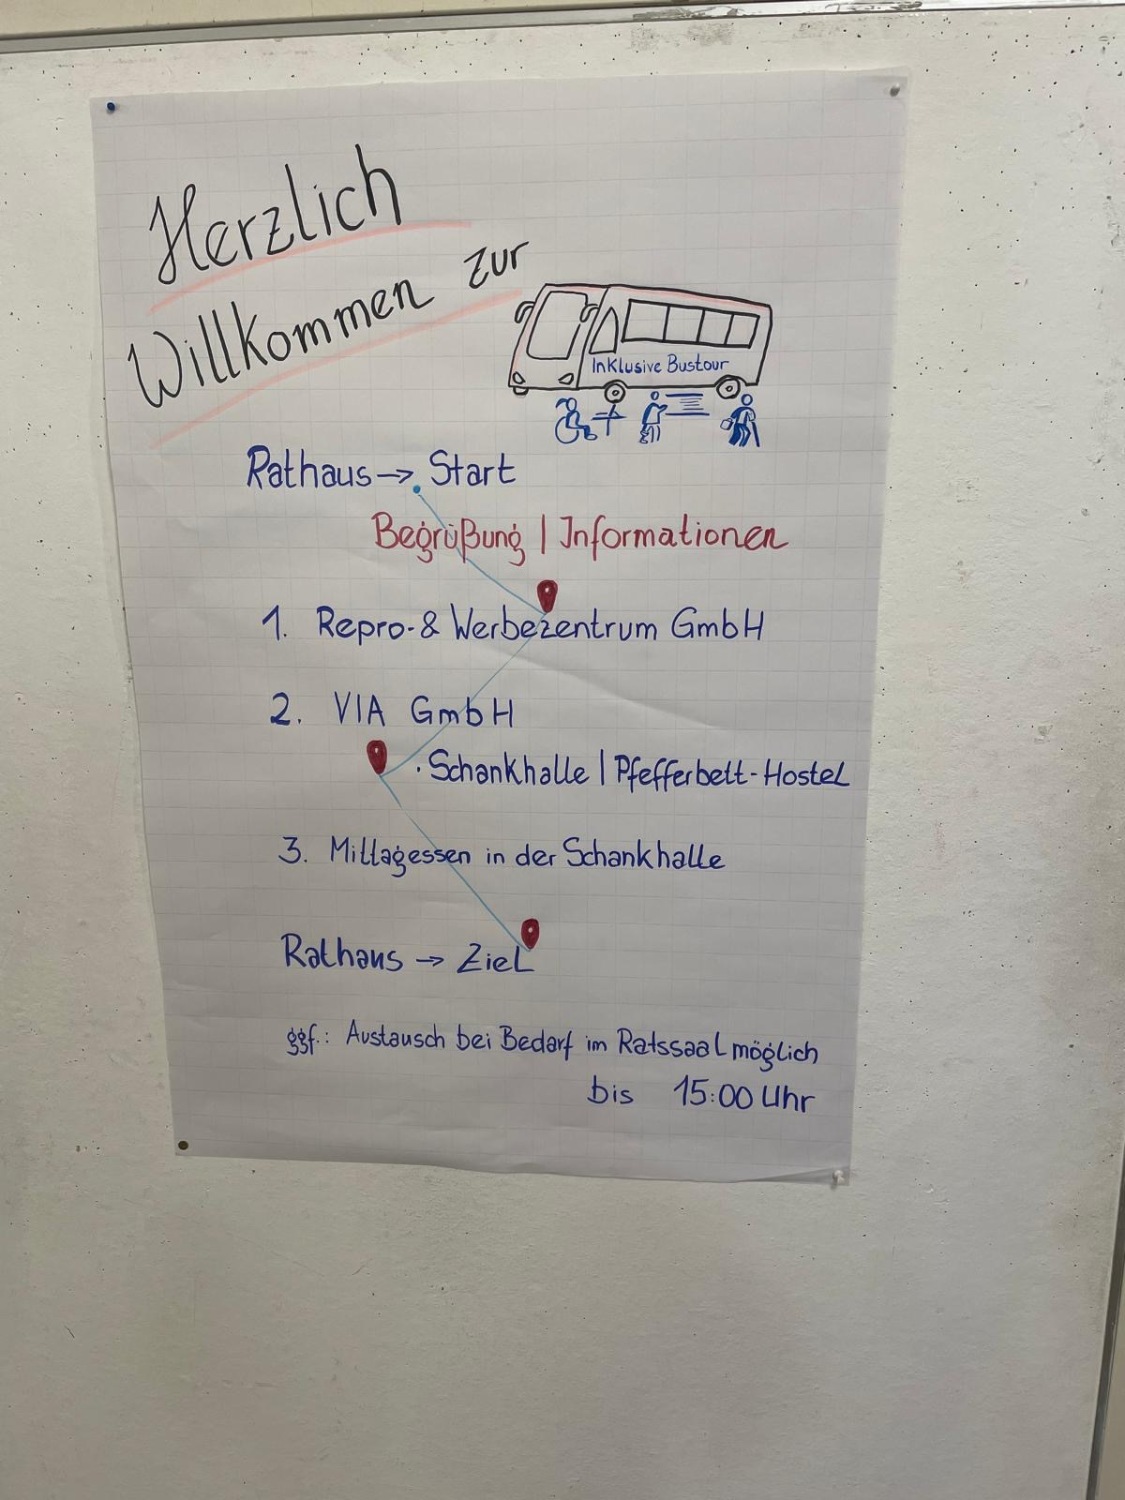 Herzlich
Willkommen zur
Inklusive Bustour
Rathaus → Start
Begrüßung | Informationen
1. Repro- & Werbezentrum GmbH
2. VIA GmbH
· Schankhalle | Pfefferbett-Hostel
3. Mittagessen in der Schankhalle
Rathaus → Ziel
ggf.: Austausch bei Bedarf im Ratssaal möglich
bis 15:00 Uhr